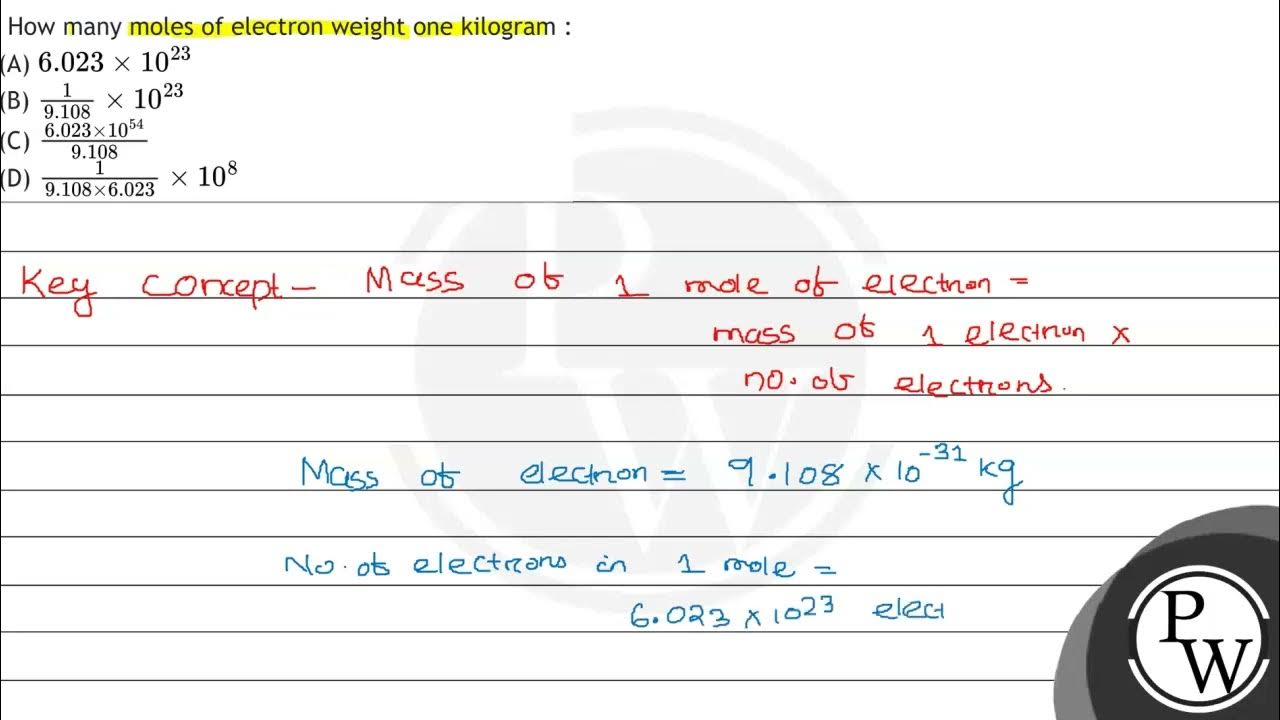 How many moles of electron weight one kilogram :
(A) 6.023 × 10²³
(B) 1/9.108 × 10²³
(C) 6.023×10⁵⁴/9.108
(D) 1/9.108×6.023 × 10⁸
Key concept - Mass of 1 mole of electron =
mass of 1 electron ×
no. of electrons.
Mass of electron = 9.108 × 10⁻³¹ kg
No. of electrons in 1 mole =
6.023 × 10²³ elect
P
W
P
W